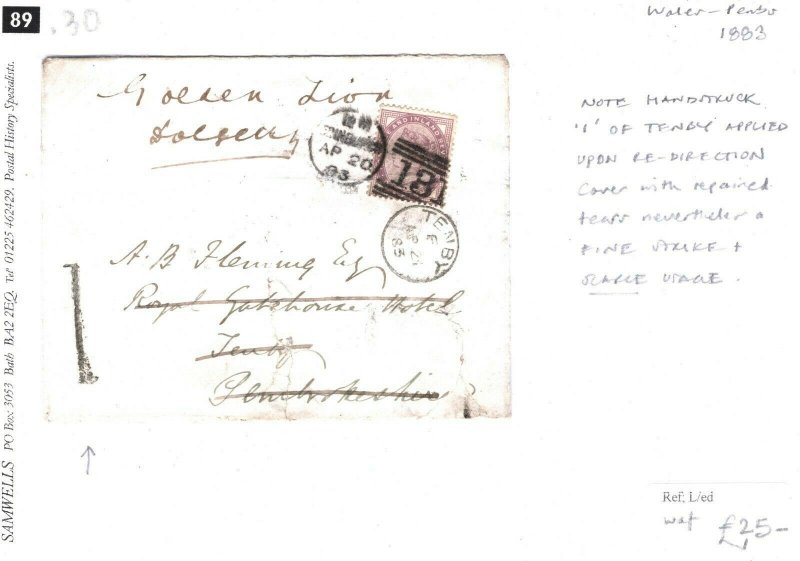 89
.30
Wales - Pembs
1883
Golden Lion
Dolgelly
AP 20
83
AND INLAND REV
18
TENBY
F
AP 21
83
A. B. Fleming Esq
Royal Gatehouse Hotel
Tenby
Pembrokeshire
1
NOTE HANDSTRUCK
'1' OF TENBY APPLIED
UPON RE-DIRECTION
Cover with repaired
tears nevertheless a
FINE STRIKE +
SCARCE USAGE.
SAMWELLS PO Box 3053 Bath BA2 2EQ. Tel 01225 462429. Postal History Specialists.
Ref: L/ed
£25-